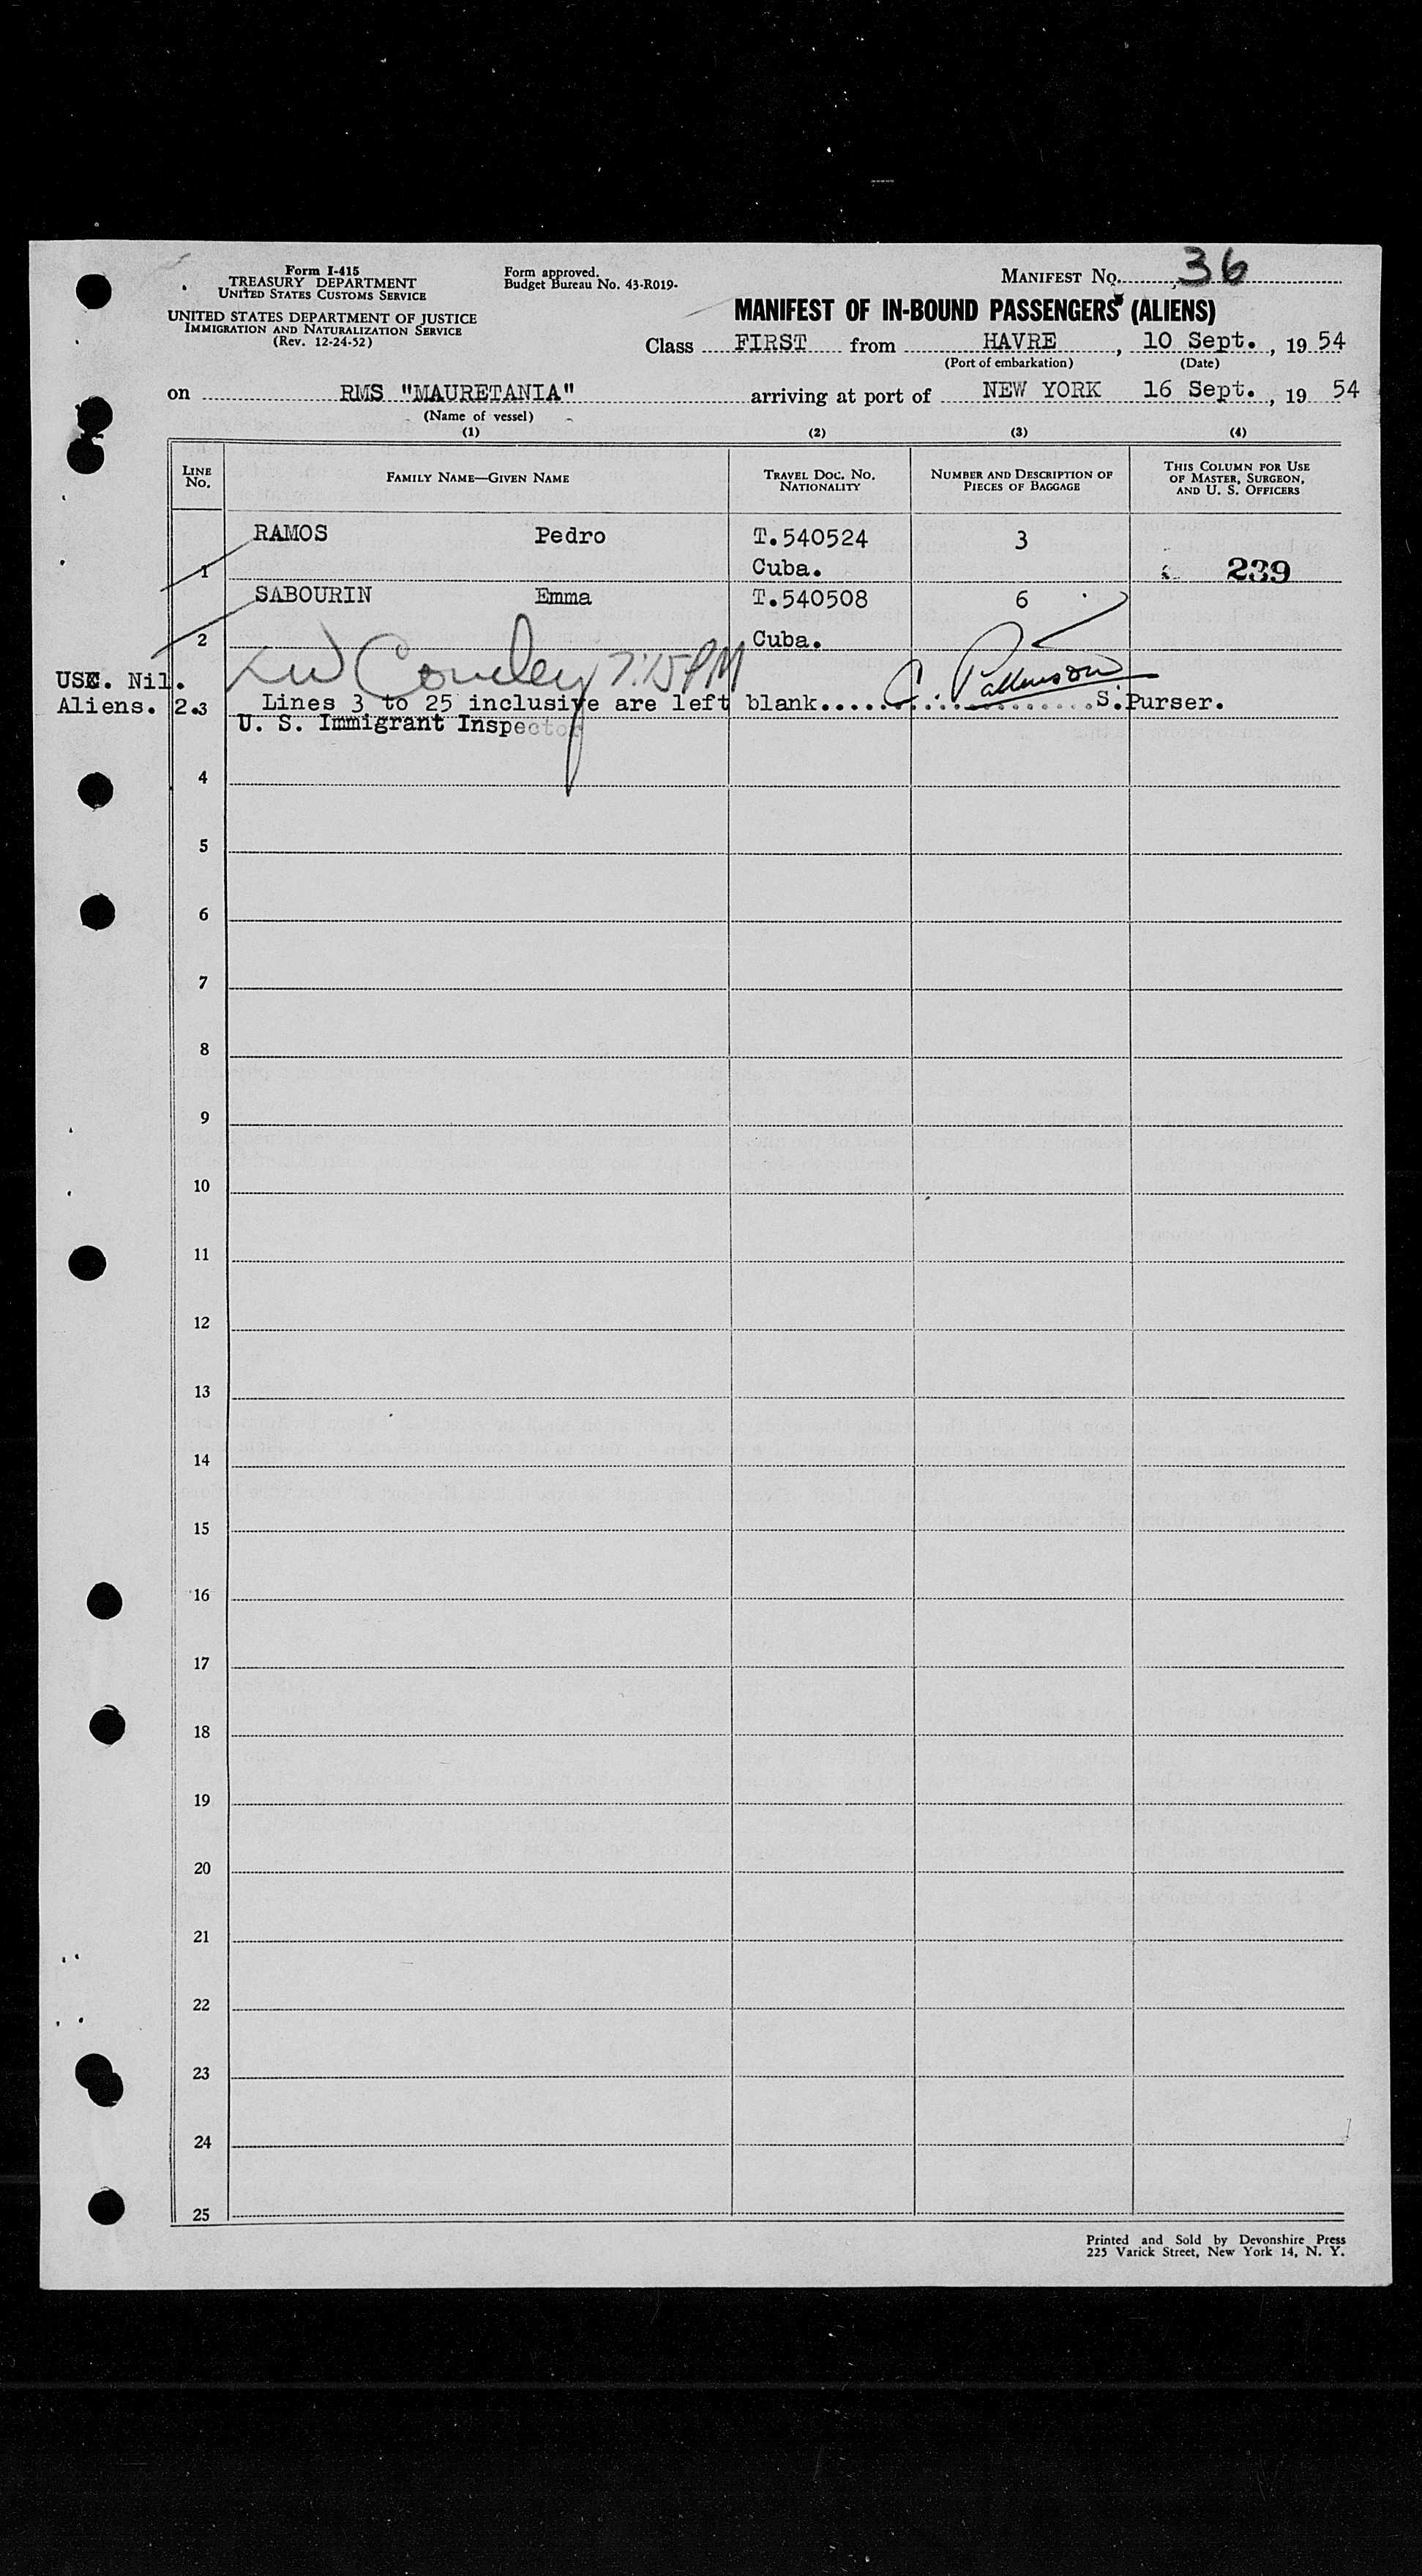 Form I-415
TREASURY DEPARTMENT
UNITED STATES CUSTOMS SERVICE
UNITED STATES DEPARTMENT OF JUSTICE
IMMIGRATION AND NATURALIZATION SERVICE
(Rev. 12-24-52)
Form approved.
Budget Bureau No. 43-R019-
MANIFEST No. 36
MANIFEST OF IN-BOUND PASSENGERS (ALIENS)
Class FIRST from HAVRE, 10 Sept., 1954
(Port of embarkation) (Date)
on RMS "MAURETANIA" arriving at port of NEW YORK 16 Sept., 19 54
(Name of vessel)
(1) (2) (3) (4)
LINE No. FAMILY NAME—GIVEN NAME TRAVEL DOC. NO. NATIONALITY NUMBER AND DESCRIPTION OF PIECES OF BAGGAGE THIS COLUMN FOR USE OF MASTER, SURGEON, AND U. S. OFFICERS
RAMOS Pedro T.540524 3
1 Cuba. 239
SABOURIN Emma T.540508 6
2 Cuba.
7:15 PM C. Pattenson
USC. Nil.
Aliens. 2.
3 Lines 3 to 25 inclusive are left blank....................S.Purser.
U. S. Immigrant Inspector
4
5
6
7
8
9
10
11
12
13
14
15
16
17
18
19
20
21
22
23
24
25
Printed and Sold by Devonshire Press
225 Varick Street, New York 14, N. Y.